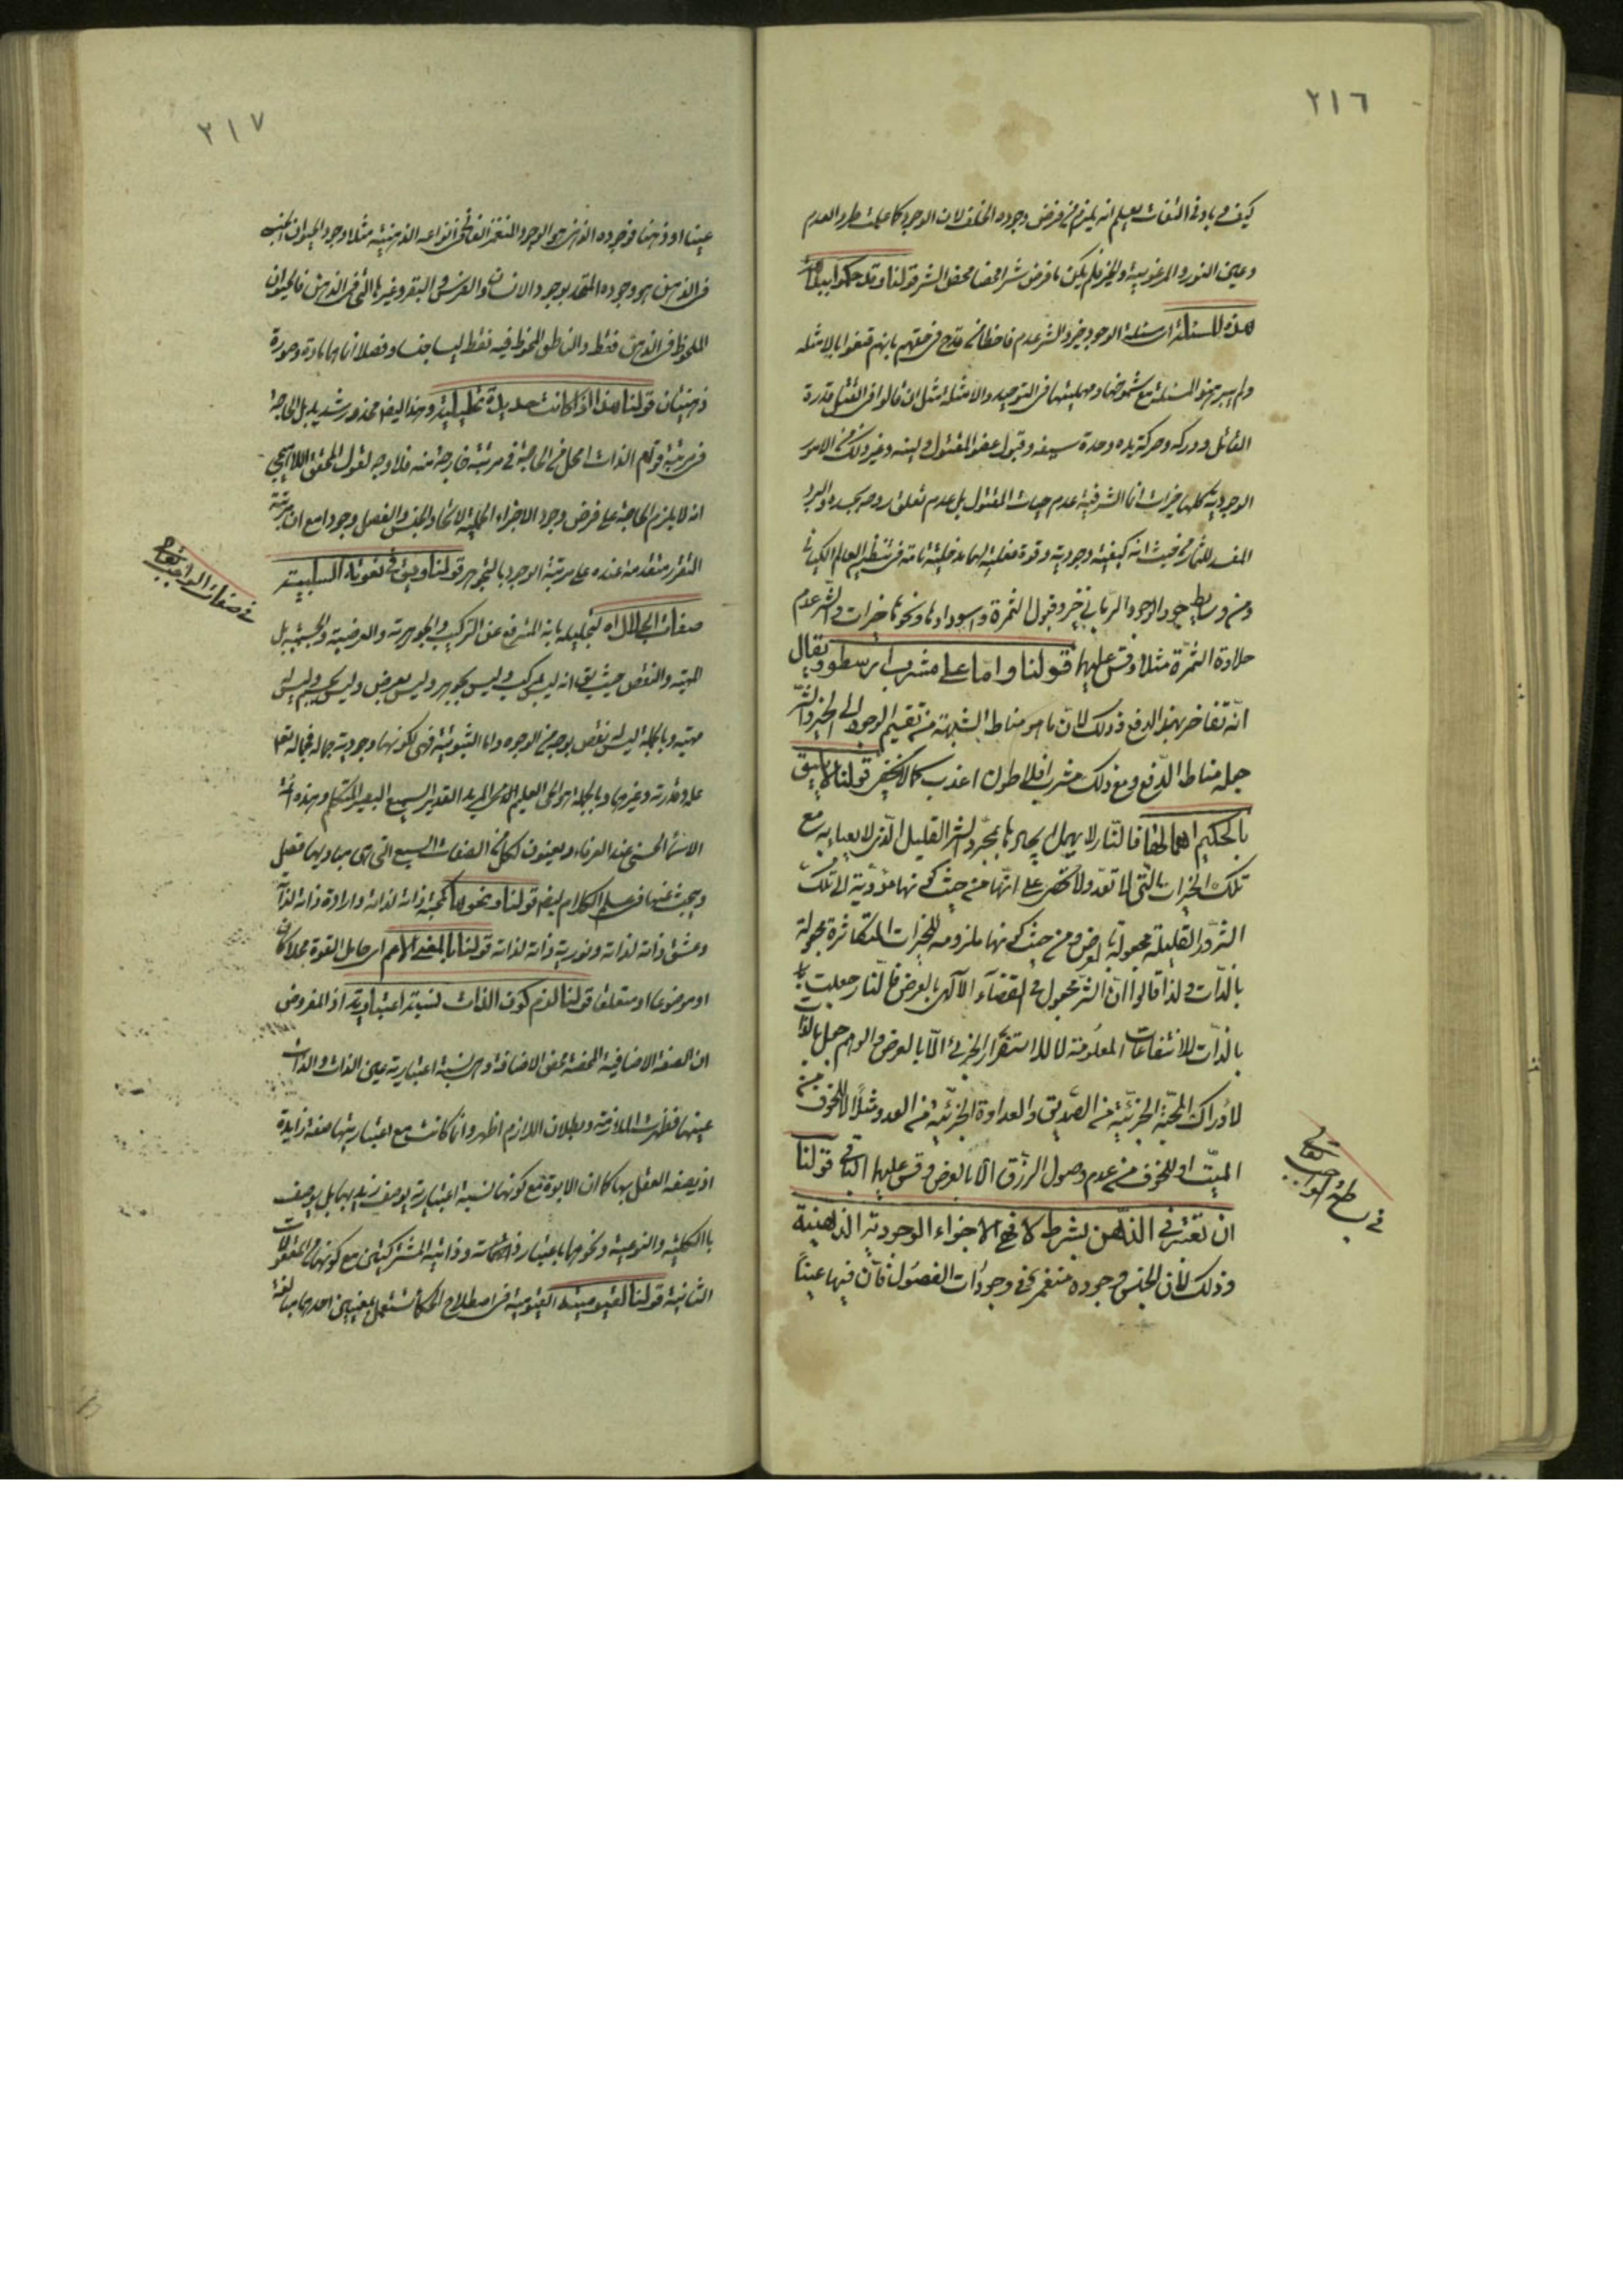 ٢١٦
كيف وبادنى التفات يعلم انه يلزم من فرض وجوده الخلف لان الوجود كما علمت طرد العدم
وعين النور والمرغوبية والخير فلم يكن ما فرض شرا محضا محض الشر قولنا وقد حكموا ببداهة
هذه المسئلة اى مسئلة الوجود خير والشر عدم فاحفظ قدح فى حقهم بانهم قنعوا بالامثلة
ولم يبرهنوا المسئلة مع شموخها و فى التوحيد والامثلة مثل ان قالوا فى القتل قدرة
القاتل ودركه وحركة يده وحدة سيفه وقبول عضو المقتول ولينه وغير ذلك من الامور
الوجودية كلها خيرات انما الشر فيه عدم حيات المقتول بل عدم تعلق روحه بجسده والبرد
المفسد للثمار من حيث انه كيفية وجودية وقوة فعلية لها مدخلية تامة فى تنظيم العالم الكيانى
ومن وسايط جود الوجود الربانى خير وقبول الثمرة واسودادها ونحوها خيرات والشر عدم
حلاوة الثمرة مثلا وقس عليها قولنا واما على مشرب ارسطو ويقال
انه تفاخر بهذا الدفع وذلك لان ما هو مناط الشبهة من تقسيم الوجود الى الخير والشر
جعله مناط الدفع ومع ذلك مشرب افلاطون اعذب كما لا يخفى قولنا لا يليق
بالحكيم اهمالها فالنار لا يهمل ايجادها بمجرد الشر القليل الذى لا يعباء به مع
تلك الخيرات التى لا تعد ولا تحصى على انها من حيث كونها مؤدية الى تلك
الشرور القليلة مجعولة بالعرض ومن حيث كونها ملزومة للخيرات المتكاثرة مجعولة
بالذات ولذا قالوا ان الشر مجعول فى القضاء الآلهى بالعرض فالنار جعلت
بالذات للانتفاعات المعلومة لا للاستضرار الجزئى الا بالعرض والوهم جعل بالذات
لادراك المحبة الجزئية من الصديق والعداوة الجزئية من العدو مثلا لا للخوف من
الميت او للخوف من عدم وصول الرزق الا بالعرض وقس عليها الباقى قولنا
ان تعتبر فى الذهن بشرط لا فهى الاجزاء الوجودية الذهنية
وذلك لان الجنس وجوده منغمر فى وجودات الفصول فان فيها عينا
فى بساطة الواجب تعالى
٢١٧
عينا او ذهنا فوجوده الذهنى هو الوجود المنغمر الفانى فى انواعه الذهنية مثلا وجود الحيوان الجنسى
فى الذهن هو وجوده المتحد بوجود الانسان والفرس والبقر وغيرها التى فى الذهن فالحيوان
الملحوظ فى الذهن فقط والناطق الملحوظ فيه فقط ليسا جنسا وفصلا انما هما مادة وصورة
ذهنيتان قولنا هذا اذا كانت حدية تحليلية وهذا ايضا محذور شديد بل الحاجة
فى مرتبة قوام الذات امحل من الحاجة فى مرتبة خارجة منه فلا وجه لقول المحقق اللاهيجى
انه لا يلزم الحاجة على فرض وجود الاجزاء الحملية لاتحاد الجنس والفصل وجودا مع ان مرتبة
التقرر متقدمة عنده على مرتبة الوجود بالتجوهر قولنا ويق فى نعوته السلبية
صفات الجلال اه لتجليله بانه المترفع عن التركيب والجوهرية والعرضية والجسمية بل
المهية والنقص حيث يق انه ليس بمركب وليس بجوهر وليس بعرض وليس بجسم وليس له
مهية وبالجملة ليس له نقص بوجه من الوجوه واما الثبوتية فهى لكونها وجودية جماله فجماله تعالى
علمه وقدرته وغيرها وبالجملة هو الحى العليم المريد القدير السميع البصير المتكلم وهذه
الاسماء الحسنى عند العرفاء ويعينون لكل من الصفات السبع التى هى مباديها فصل
ويبحث عنها فى علم الكلام ايضا قولنا ونحوها كمحبة ذاته لذاته وارادة ذاته لذاته
وعشق ذاته لذاته ونورية ذاته لذاته قولنا بالمعنى الاعم اى حامل القوة محلا كان
او موضوعا او متعلقا قولنا لزم كون الذات نسبة اعتبارية اذ المفروض
ان الصفة الاضافية المحضة محض الاضافة وهى نسبة اعتبارية عين الذات والذات
عينها فظهرت الملازمة وبطلان اللازم اظهر وانما كانت مع اعتباريتها صفة زايدة
اذ يصفه العقل بها كما ان الابوة مع كونها نسبة اعتبارية يوصف زيد بها بل يوصف
بالكلية والنوعية ونحوها باعتبار وذاتية المشتركين مع كونهما من المعقولات
الثانية قولنا القيومية القيومية فى اصطلاح الحكماء تستعمل بمعنيين احدهما مبالغة
فى صفات الواجب تعالى